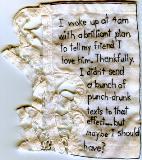 I woke up at 4am
with a brilliant plan
to tell my friend I
love him. Thankfully,
I didn't send
a bunch of
punch-drunk
texts to that
effect.... but
maybe I should
have?